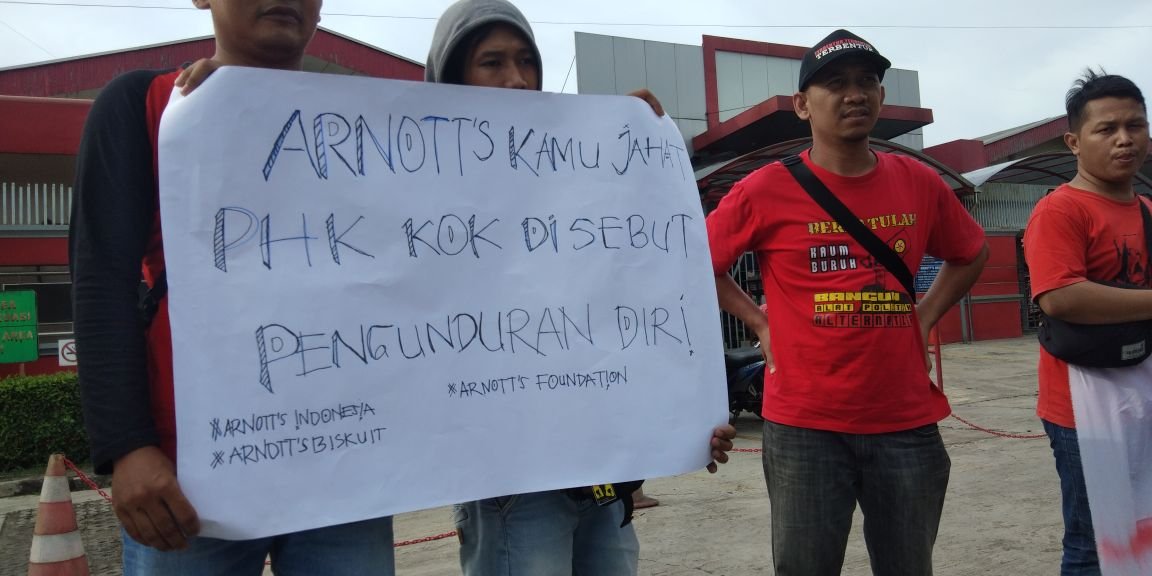 ARNOTT'S KAMU JAHAT
PHK KOK DISEBUT
PENGUNDURAN DIRI!
#ARNOTT'S FOUNDATION
#ARNOTT'S INDONESIA
#ARNOTT'S BISKUIT
TERBENTUR
KAUM
BURUH
BANGUN
ALAT POLITIK
ALTERNATIF
AREA